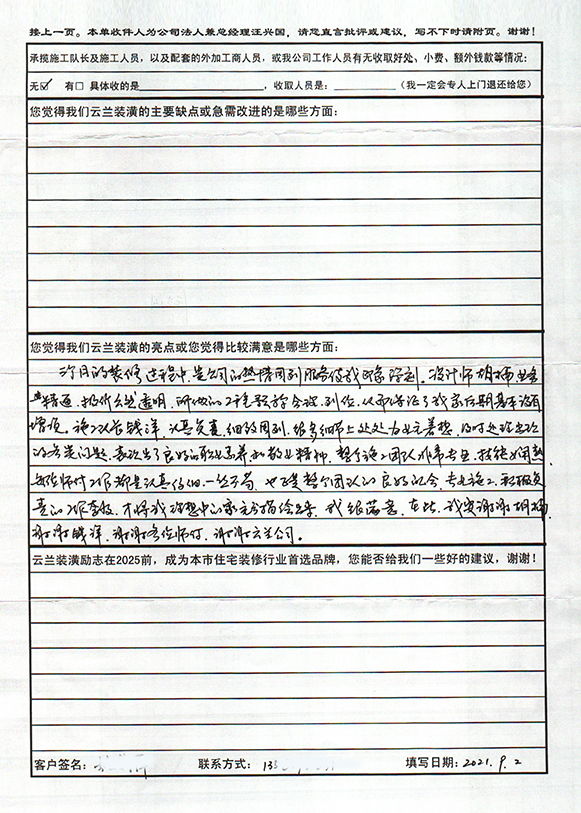 接上一页。本单收件人为公司法人兼总经理汪兴国,请您直言批评或建议,写不下时请附页。谢谢!
承揽施工队长及施工人员,以及配套的外加工商人员,或我公司工作人员有无收取好处、小费、额外钱款等情况:
无☑ 有□ 具体收的是____________,收取人员是:__________(我一定会专人上门退还给您)
您觉得我们云兰装潢的主要缺点或急需改进的是哪些方面:
您觉得我们云兰装潢的亮点或您觉得比较满意是哪些方面:
个月的装修过程中,贵公司的热情周到服务使我印象深刻。设计师胡楠业务
精通,报价公然透明,所做的工程预算合理到位,从而保证了我家后期基本没有
增项。施工队长钱洋,认真负责,细致周到,很多细节上处处为业主着想,及时处理出现
的各类问题,表现出了良好的职业素养和敬业精神。整个施工团队非常专业,技能娴熟
每位师付工作都是认真仔细、一丝不苟,也正是整个团队的良好配合,专业施工,积极负
责的工作态度,才将我理想中的家完美描绘出来,我很满意。在此,我要谢谢胡楠,
谢谢钱洋,谢谢各位师付,谢谢云兰公司。
云兰装潢励志在2025前,成为本市住宅装修行业首选品牌,您能否给我们一些好的建议,谢谢!
客户签名: 联系方式:13 填写日期:2021.9.2